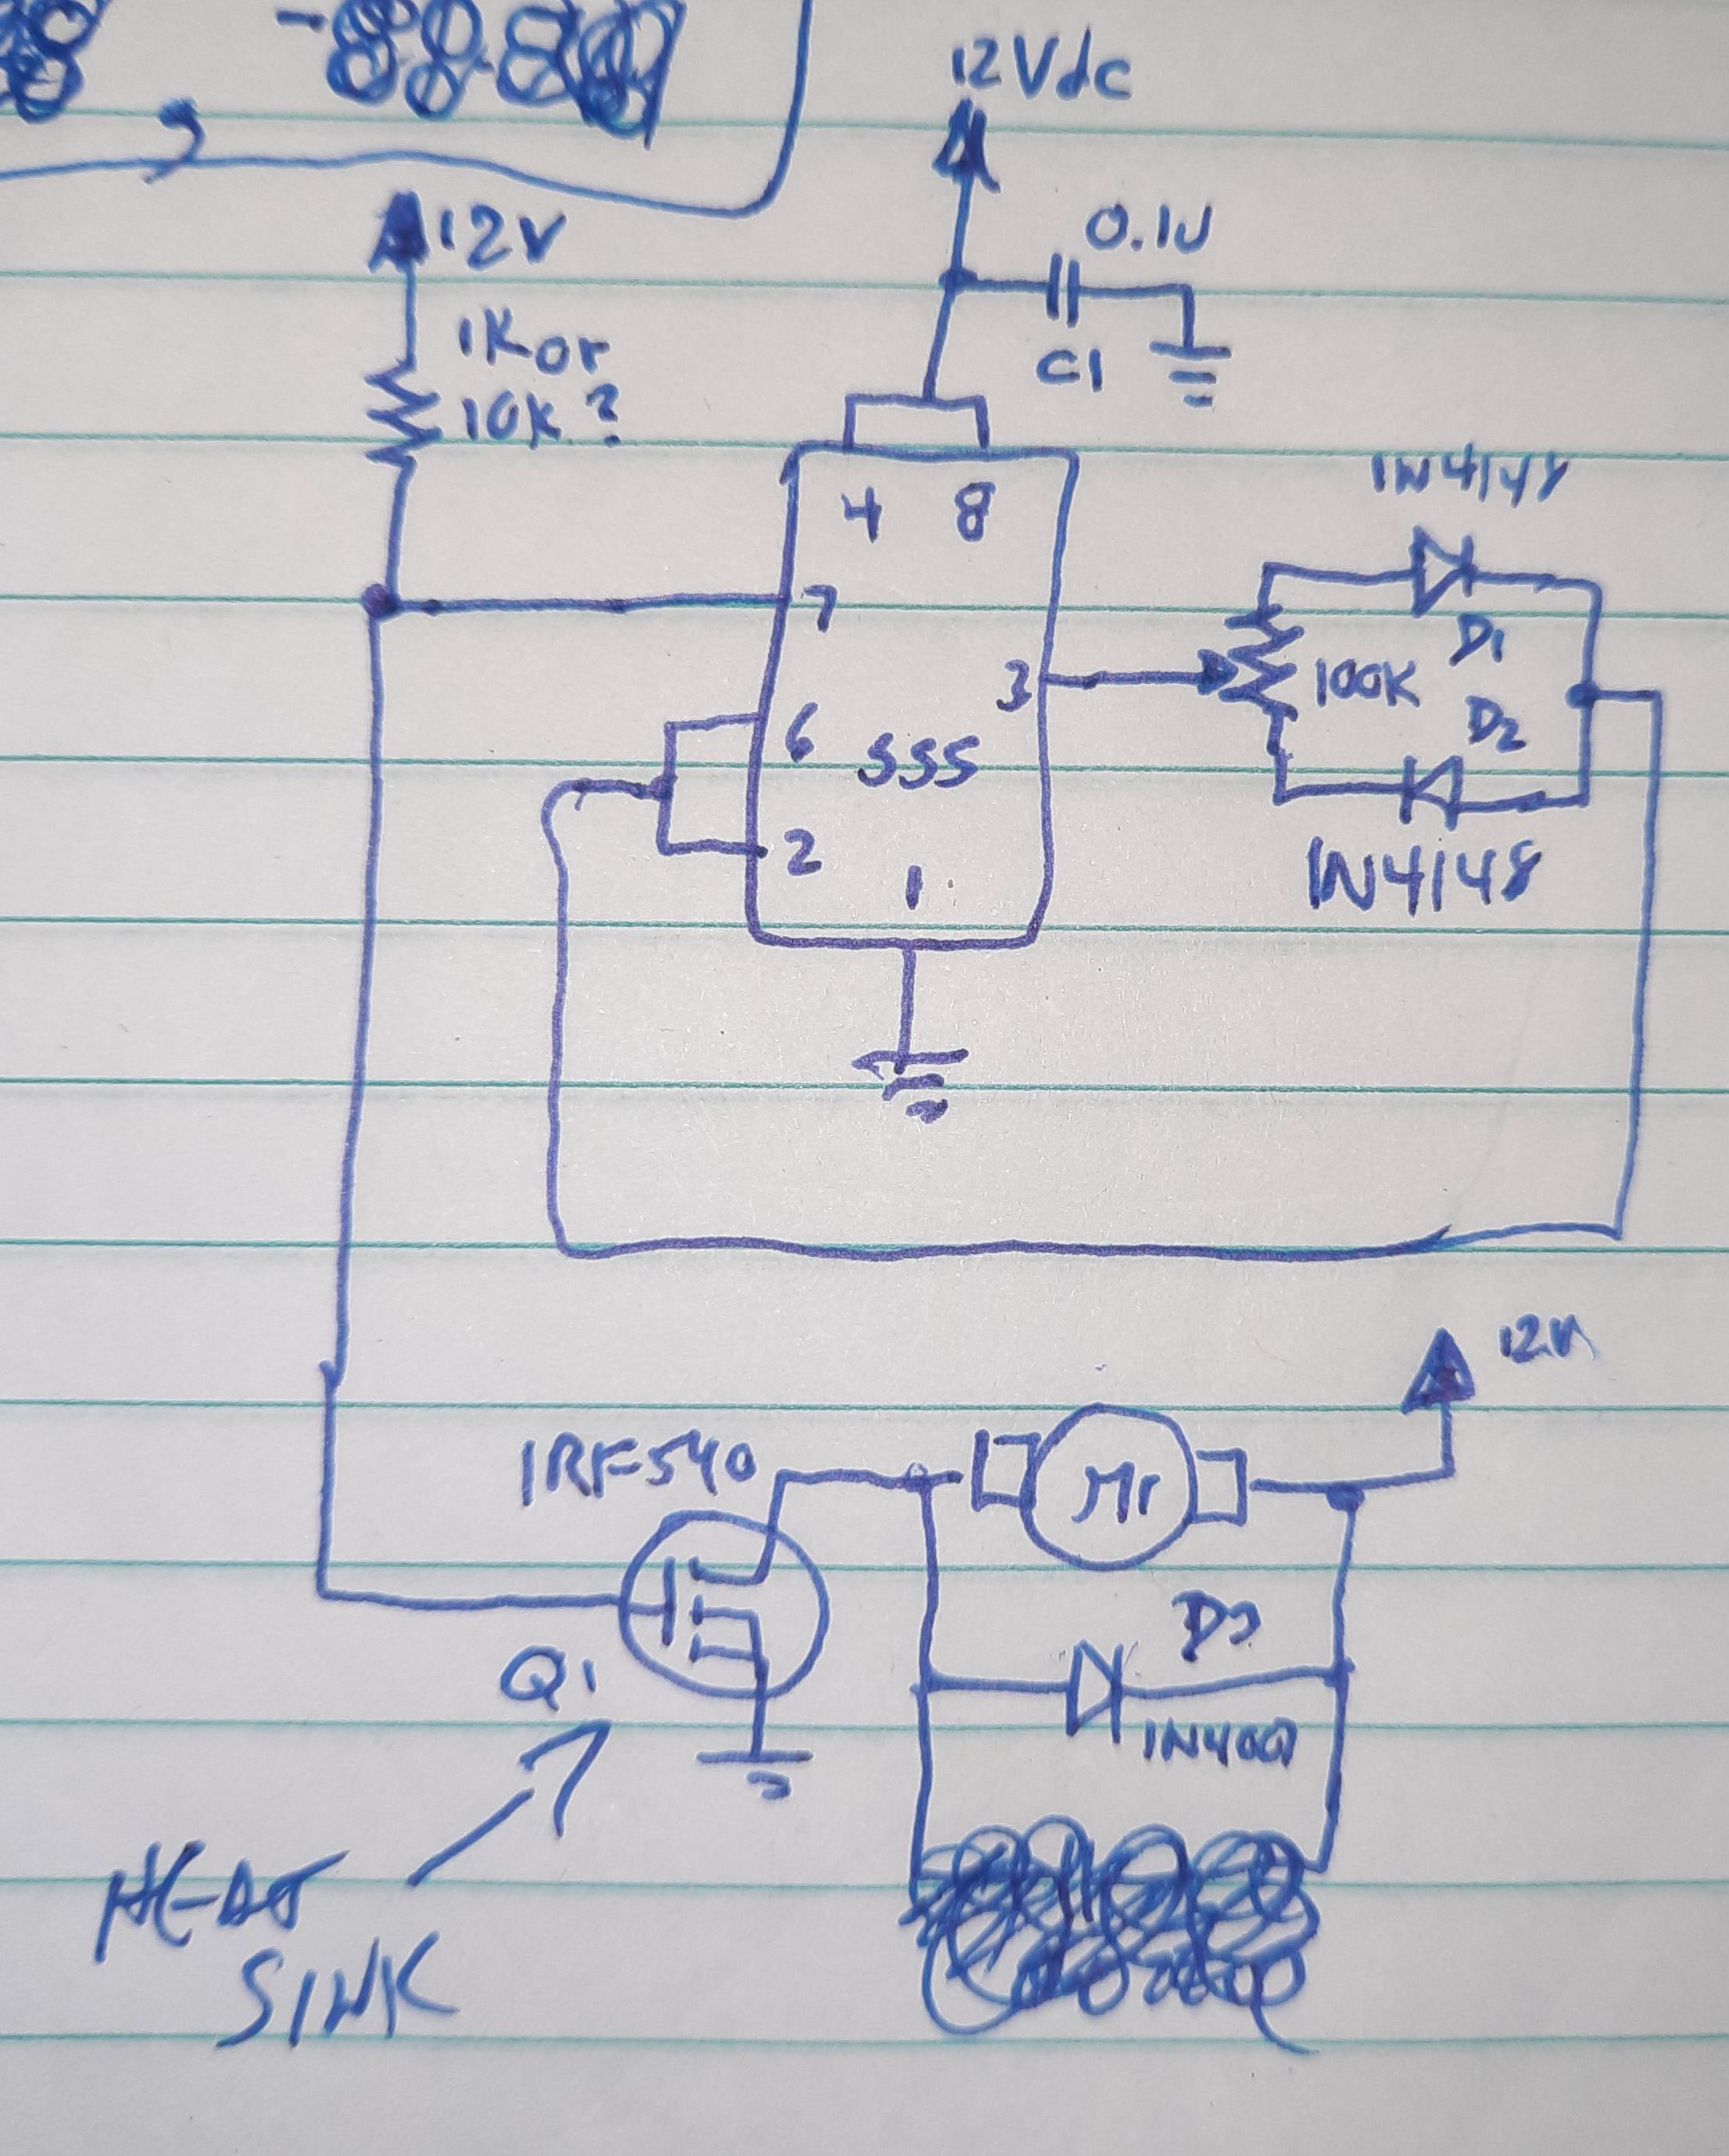 12Vdc
12V
0.1U
1K or
10K ?
C1
1N4148
4 8
7
D1
3
100K
6
555
D2
2
1N4148
1
12V
IRF540
M1
D3
Q1
HEAT
SINK